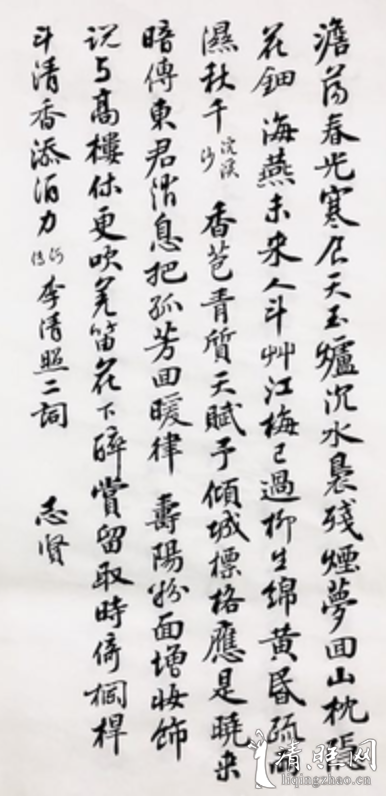 澹荡春光寒食天玉爐沉水裊殘煙夢回山枕隱
花鈿 海燕未来人斗艸江梅已過柳生綿黄昏疏雨
濕秋千 浣溪沙 香苞青質天賦予傾城標格應是曉来
暗傳東君消息把孤芳回暖律 壽陽粉面增妝飾
说与高樓休更吹羌笛花下醉賞留取時倚欄桿
斗清香添酒力 河傳 李清照二詞 志贤
清照网
liqingzhao.cn